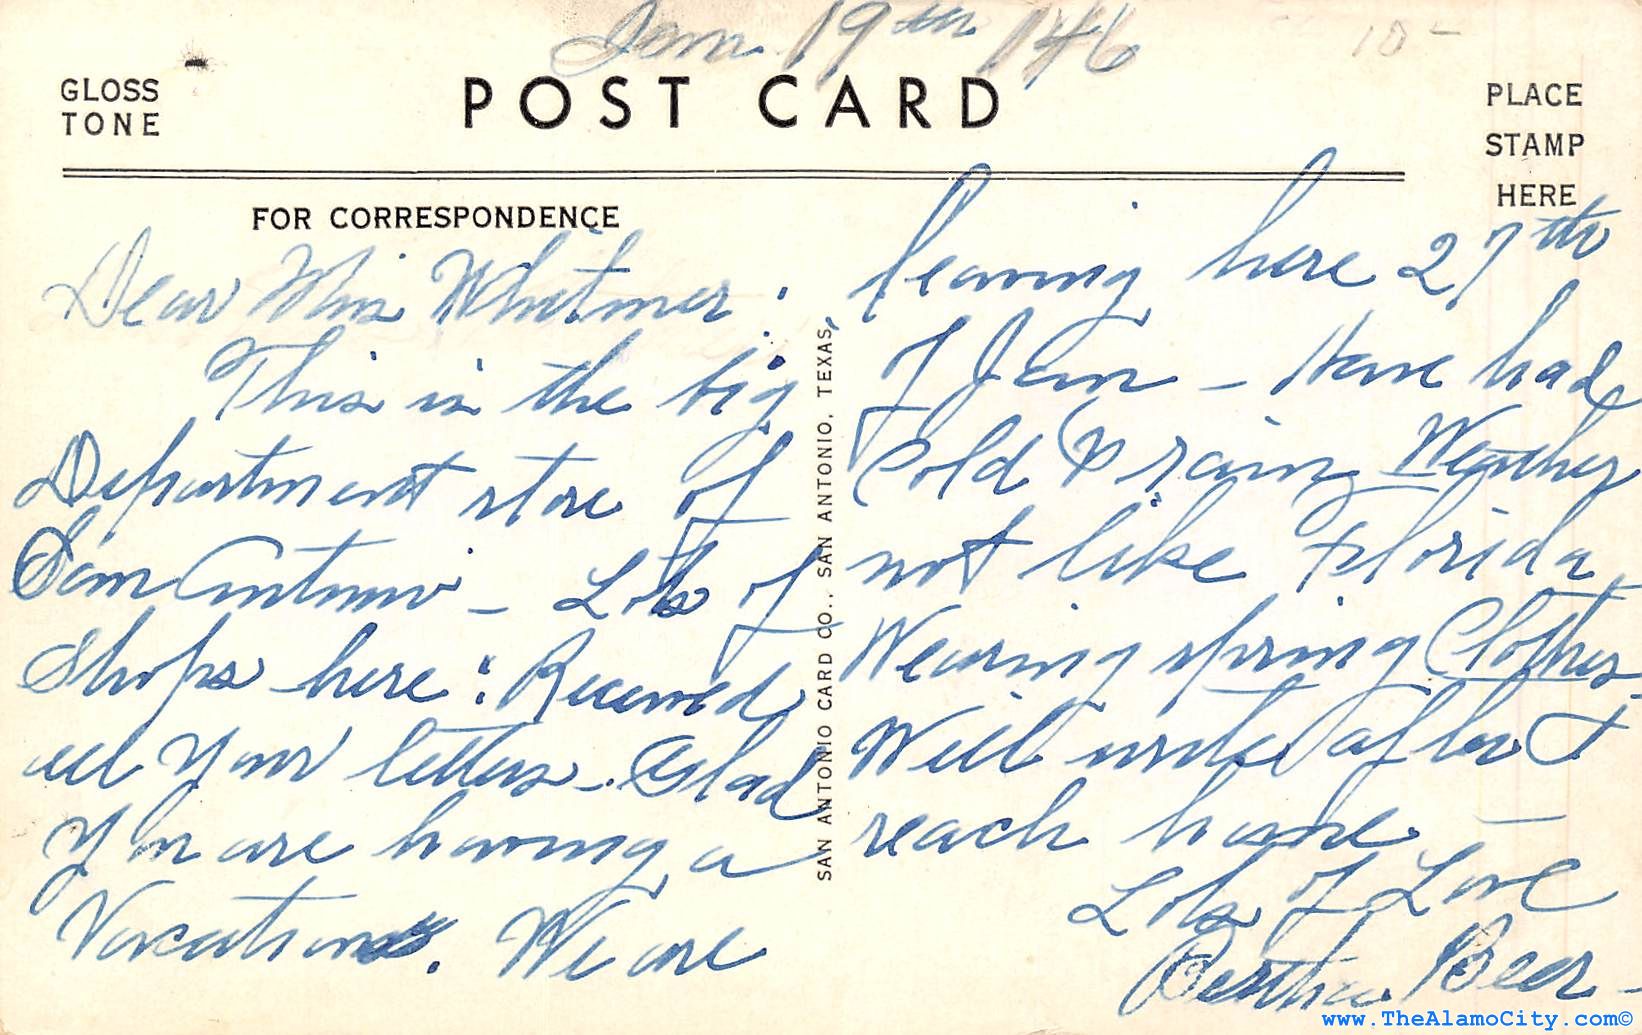 Jan 19th 1946
10-
GLOSS
TONE
POST CARD
PLACE
STAMP
HERE
FOR CORRESPONDENCE
Dear Miss Whitmer:
This is the big
Department store of
San Antonio - Lots of
Shops here: Received
all your letters - Glad
you are having a
Vacation. We are
SAN ANTONIO CARD CO., SAN ANTONIO, TEXAS
leaving here 27th
of Jan - Have had
Cold & rainy Weather
not like Florida
Wearing spring Clothes.
Will write after I
reach home -
Lots of Love
Bertha Beer -
www.TheAlamoCity.com©